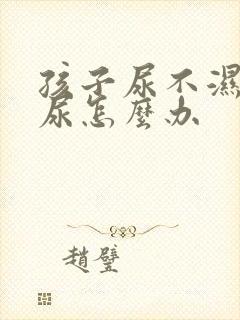 孩子尿不濕
尿怎麼办
趙璧